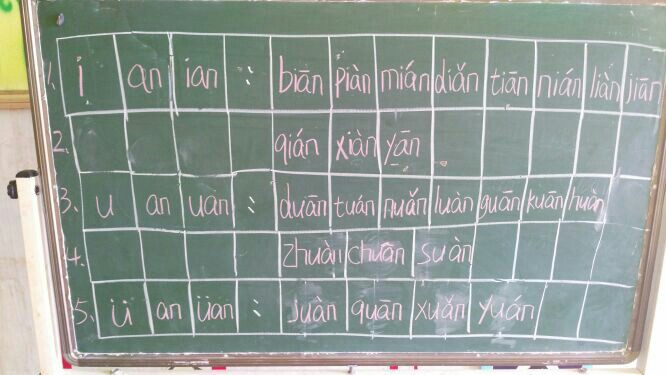 1. i an ian : biān piàn mián diǎn tiān nián liàn jiān
2. qián xiàn yān
3. u an uan : duān tuán nuǎn luàn guān kuān huàn
4. zhuàn chuān suàn
5. ü an üan : juàn quān xuǎn yuán